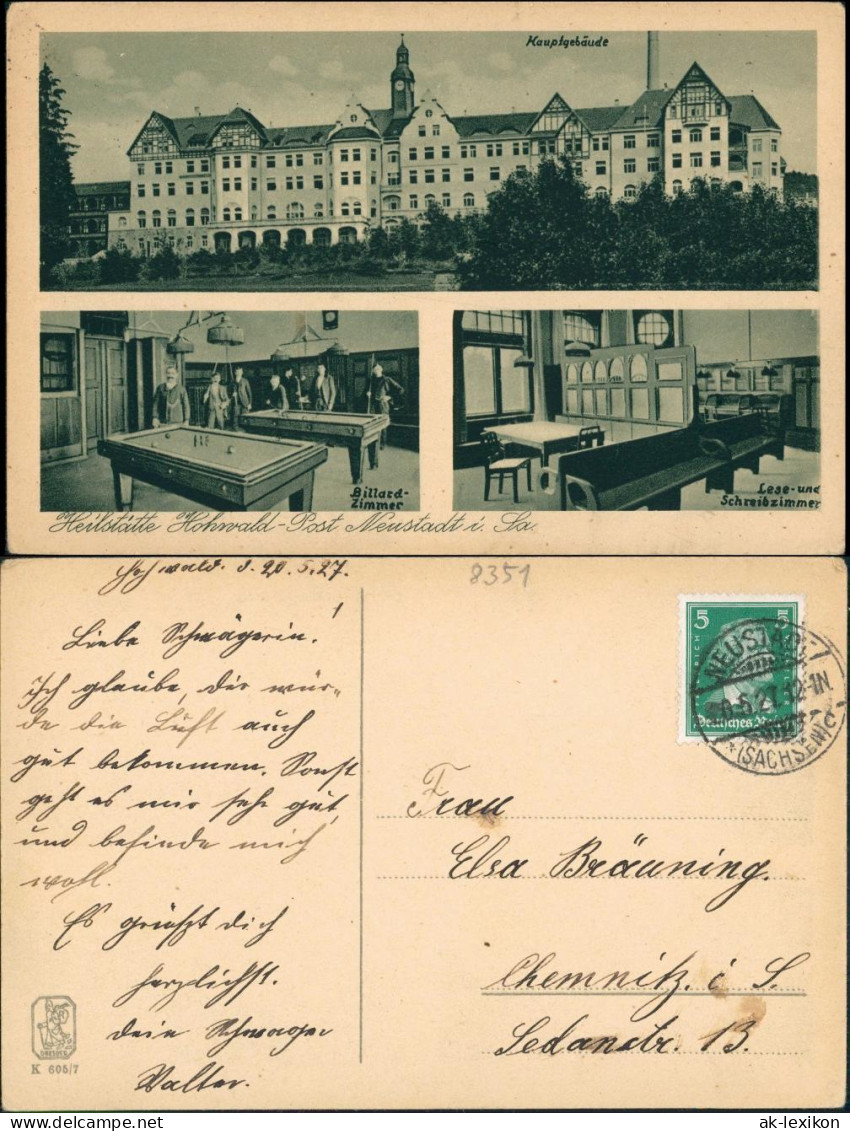 Hauptgebäude
Billard-
Zimmer
Lese- und
Schreibzimmer
Heilstätte Hohwald-Post Neustadt i. Sa.
Hohwald. d. 20.5.27.
8351
Liebe Schwägerin!
Ich glaube, dir wür-
de die Luft auch
gut bekommen. Sonst
geht es mir sehr gut,
und befinde mich
wohl.
Es grüßt dich
herzlichst.
dein Schwager
Walter.
5
Deutsches
NEUSTADT
5.27.12-1N
(SACHSEN)
Frau
Elsa Bräuning.
Chemnitz. i S.
Sedanstr. 13.
DRESDEN
K 605/7
ak-lexikon